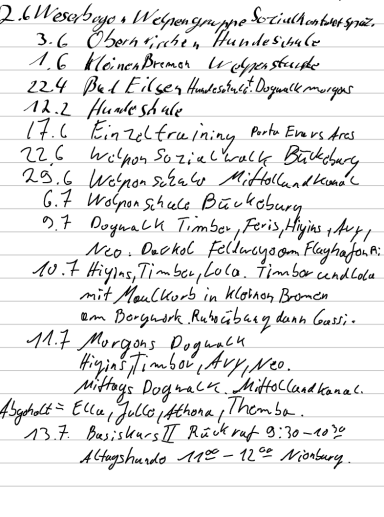 2.6 Weserbogen Welpengruppe Sozialkontaktspaz.
3.6 Obernkirchen Hundeschule
1.6 Kleinen Bremen Welpenstunde
22.4 Bad Eilsen Hundeschule + Dogwalk morgens
12.2 Hundeschule
17.6 Einzeltraining Porta Evers Ares
22.6 Welpen Sozialwalk Bückeburg
29.6 Welpenschule Mittellandkanal
6.7 Welpenschule Bückeburg
9.7 Dogwalk Timber, Feris, Higins, Avy,
Neo. Dackel Feldwege am Flughafen Pi:
10.7 Higins, Timber, Lola. Timber und Lola
mit Maulkorb in Kleinen Bremen
am Bergwerk. Ruheübung dann Gassi.
11.7 Morgens Dogwalk
Higins, Timber, Avy, Neo.
Mittags Dogwalk. Mittellandkanal.
Abgeholt = Ella, Jello, Athena, Themba.
13.7. Basiskurs II Rückruf 9:30-10:30
Altagshunde 11 00 - 12 00 Nienburg.